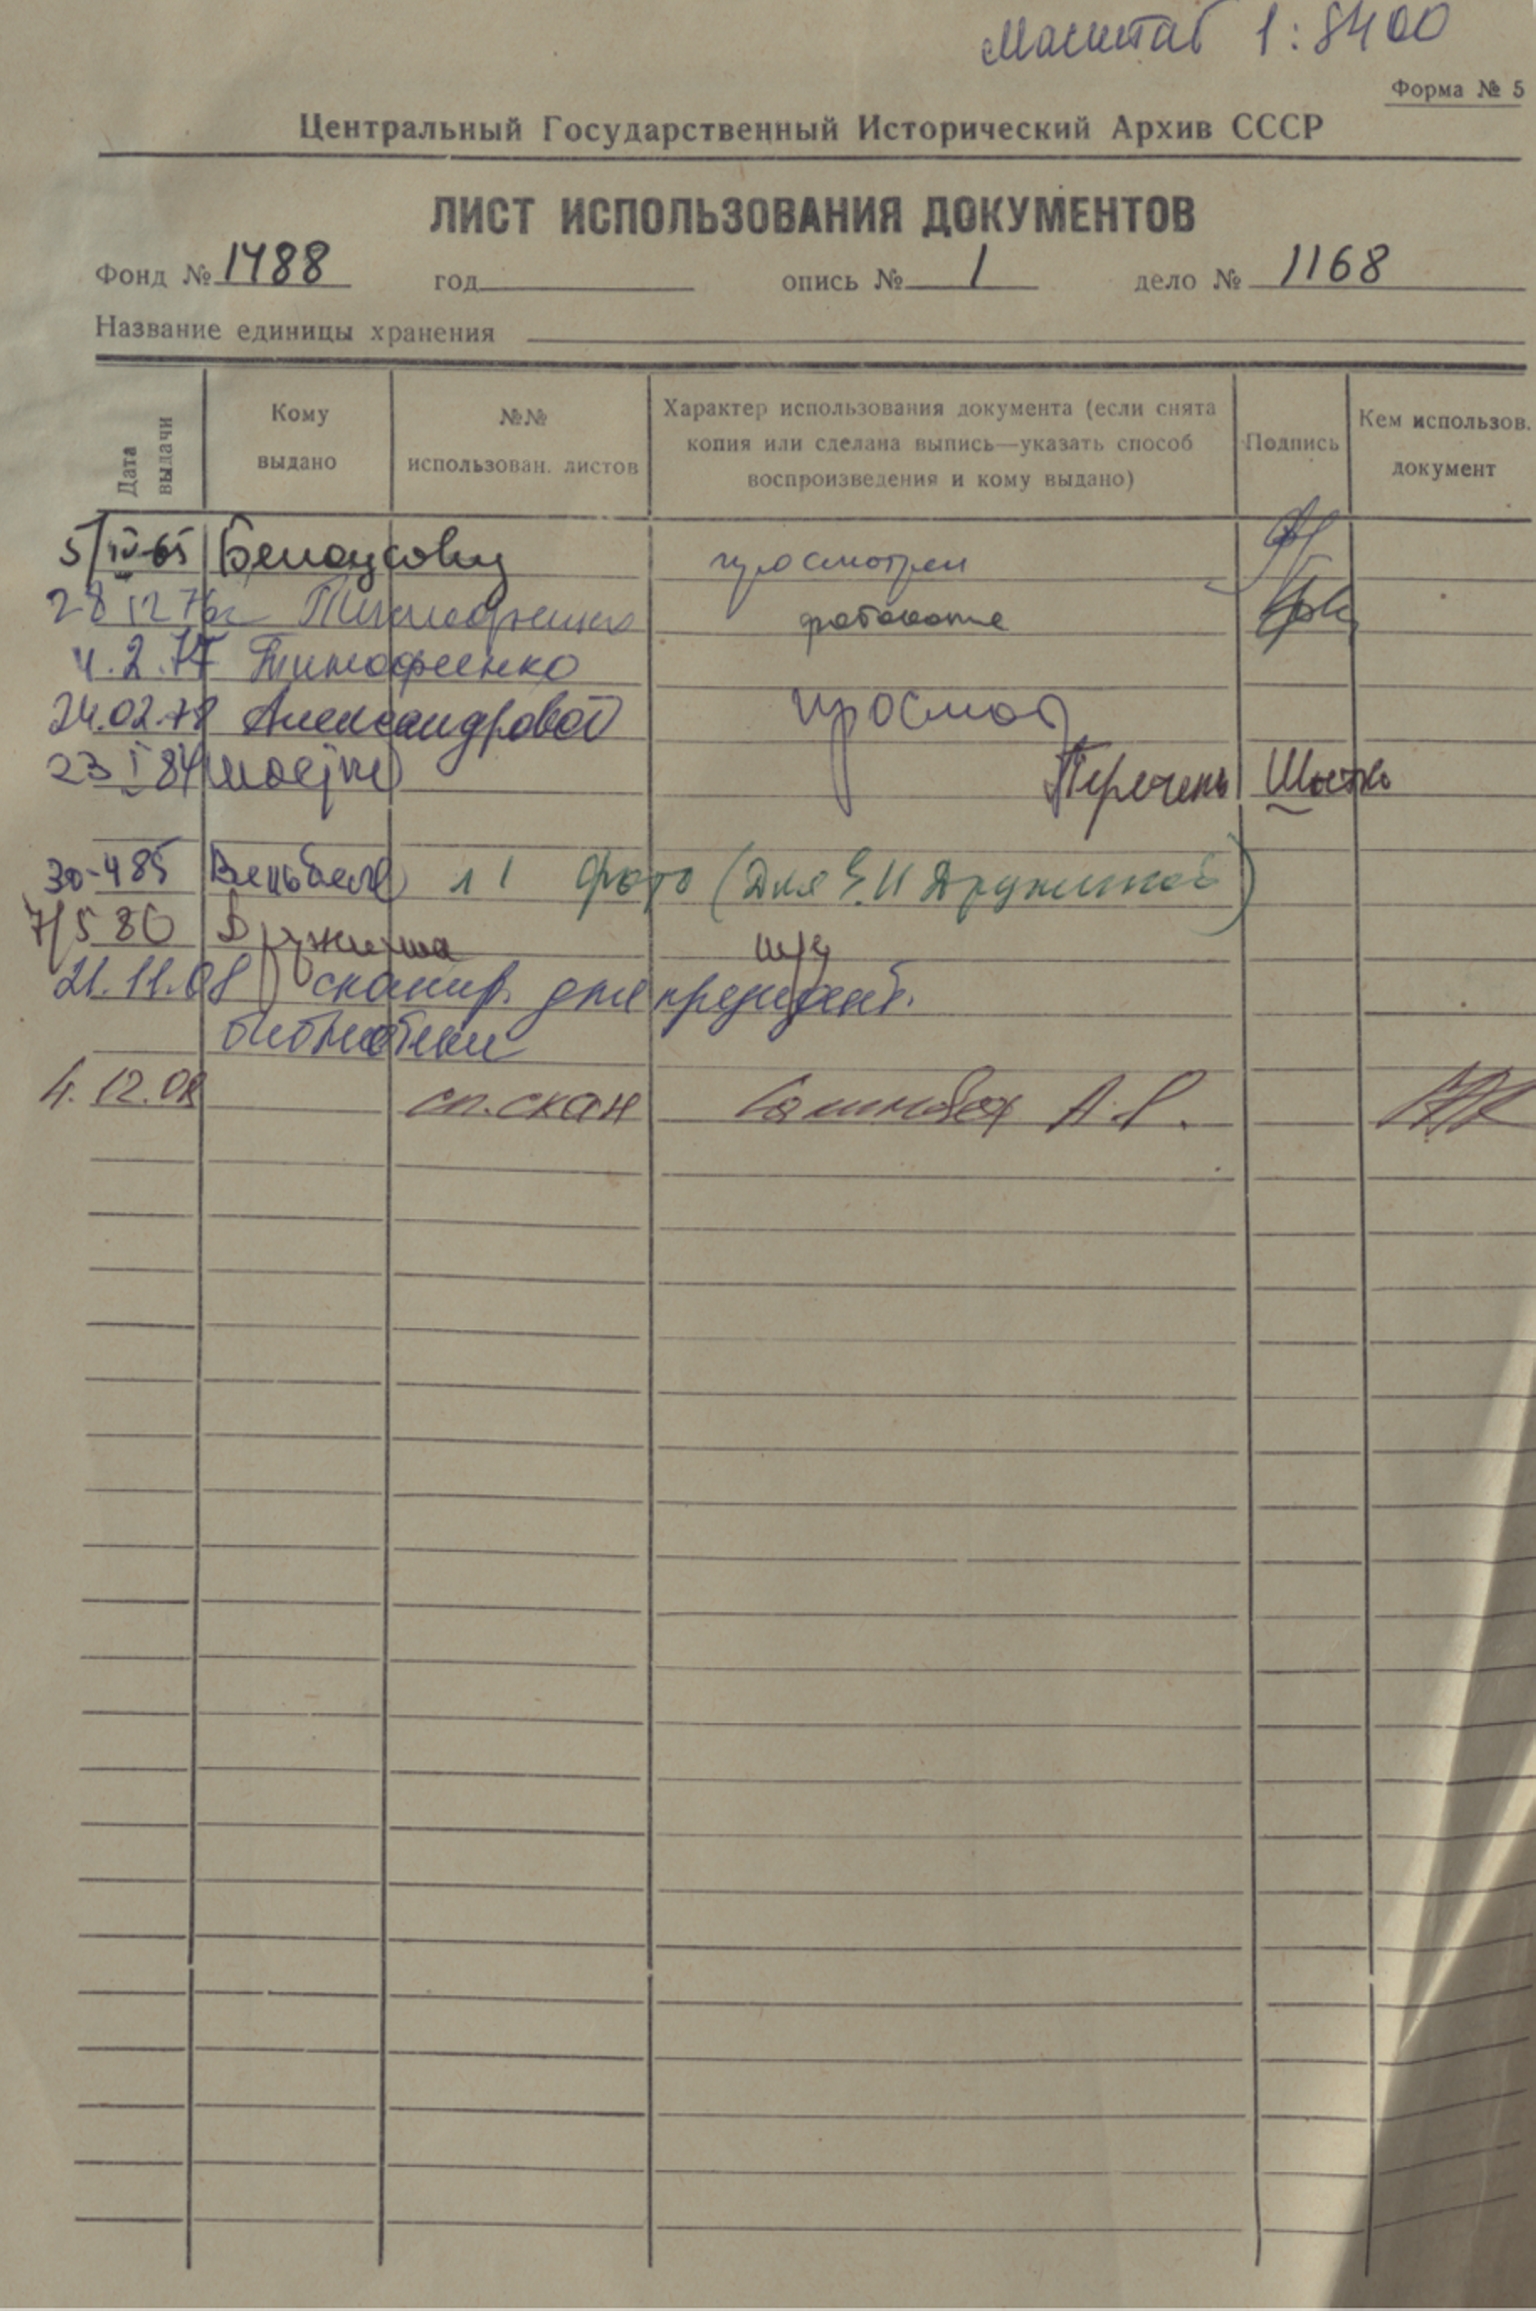 Масштаб 1:8400
Форма № 5
Центральный Государственный Исторический Архив СССР
ЛИСТ ИСПОЛЬЗОВАНИЯ ДОКУМЕНТОВ
Фонд № 1488 год опись № 1 дело № 1168
Название единицы хранения
Дата выдачи
Кому выдано
№№ использован. листов
Характер использования документа (если снята
копия или сделана выпись—указать способ
воспроизведения и кому выдано)
Подпись
Кем использов. документ
5/IV-65 Белоусову просмотрен
28 12 76г Тимофеенко фотокопие
4.2.77 Тимофеенко
24.02.78 Александровой просмот
23 I 84 Перечень
30-4 85 л 1 фото (для Е.И Дружининой)
7/5 86 Дружинина
21.11.08 сканир. для президент.
библиотеки
4.12.08 сп.скан А.